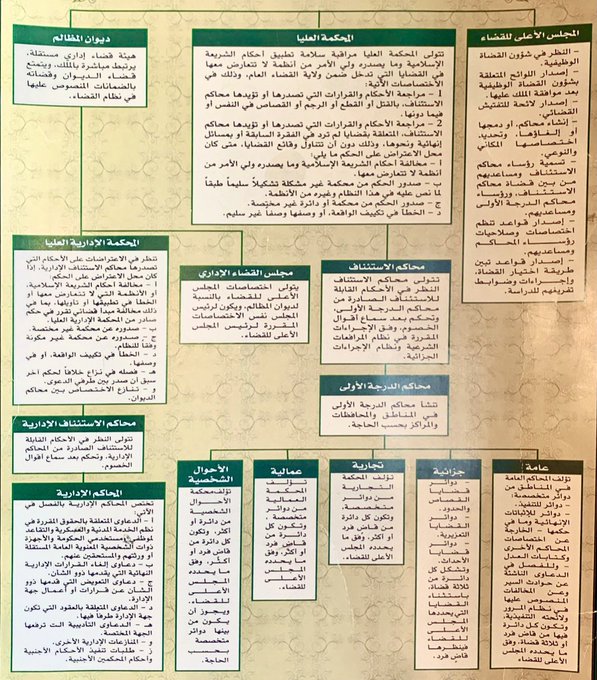 المجلس الأعلى للقضاء
- النظر في شؤون القضاة
الوظيفية.
- إصدار اللوائح المتعلقة
بشؤون القضاة الوظيفية
بعد موافقة الملك عليها.
- إصدار لائحة للتفتيش
القضائي.
- إنشاء محاكم، أو دمجها
أو إلغاؤها، وتحديد
اختصاصها المكاني
والنوعي.
- تسمية رؤساء محاكم
الاستئناف ومساعديهم
من بين قضاة محاكم
الاستئناف، ورؤساء
محاكم الدرجة الأولى
ومساعديهم.
- إصدار قواعد تنظم
اختصاصات وصلاحيات
رؤساء المحاكم
ومساعديهم.
- إصدار قواعد تبين
طريقة اختيار القضاة،
وإجراءات وضوابط
تفريغهم للدراسة.
المحكمة العليا
تتولى المحكمة العليا مراقبة سلامة تطبيق أحكام الشريعة
الإسلامية وما يصدره ولي الأمر من أنظمة لا تتعارض معها
في القضايا التي تدخل ضمن ولاية القضاء العام، وذلك في
الاختصاصات الآتية:
1 - مراجعة الأحكام والقرارات التي تصدرها أو تؤيدها محاكم
الاستئناف، بالقتل أو القطع أو الرجم أو القصاص في النفس أو
فيما دونها.
2 - مراجعة الأحكام والقرارات التي تصدرها أو تؤيدها محاكم
الاستئناف، المتعلقة بقضايا لم ترد في الفقرة السابقة أو بمسائل
إنهائية ونحوها، وذلك دون أن تتناول وقائع القضايا، متى كان
محل الاعتراض على الحكم ما يلي:
أ - مخالفة أحكام الشريعة الإسلامية وما يصدره ولي الأمر من
أنظمة لا تتعارض معها.
ب - صدور الحكم من محكمة غير مشكلة تشكيلاً سليماً طبقاً
لما نص عليه في هذا النظام وغيره من الأنظمة.
ج - صدور الحكم من محكمة أو دائرة غير مختصة.
د - الخطأ في تكييف الواقعة، أو وصفها وصفا غير سليم.
ديوان المظالم
هيئة قضاء إداري مستقلة،
يرتبط مباشرة بالملك، ويتمتع
قضاء الديوان وقضاته
بالضمانات المنصوص عليها
في نظام القضاء.
محاكم الاستئناف
تتولى محاكم الاستئناف
النظر في الأحكام القابلة
للاستئناف الصادرة من
محاكم الدرجة الأولى،
وتحكم بعد سماع أقوال
الخصوم، وفق الإجراءات
المقررة في نظام المرافعات
الشرعية ونظام الإجراءات
الجزائية.
مجلس القضاء الإداري
يتولى اختصاصات المجلس
الأعلى للقضاء بالنسبة
لديوان المظالم، ويكون لرئيس
المجلس نفس الاختصاصات
المقررة لرئيس المجلس
الأعلى للقضاء.
المحكمة الإدارية العليا
تنظر في الاعتراضات على الأحكام التي
تصدرها محاكم الاستئناف الإدارية، إذا
كان محل الاعتراض على الحكم:
أ - مخالفة أحكام الشريعة الإسلامية،
أو الأنظمة التي لا تتعارض معها أو
الخطأ في تطبيقها أو تأويلها، بما في
ذلك مخالفة مبدأ قضائي تقرر في حكم
صادر من المحكمة الإدارية العليا.
ب - صدوره عن محكمة غير مختصة.
ج - صدوره عن محكمة غير مكونة
وفقا للنظام.
د - الخطأ في تكييف الواقعة، أو في
وصفها.
هـ - فصله في نزاع خلافاً لحكم آخر
سبق أن صدر بين طرفي الدعوى.
و - تنازع الاختصاص بين محاكم
الديوان.
محاكم الدرجة الأولى
تنشأ محاكم الدرجة الأولى
في المناطق والمحافظات
والمراكز بحسب الحاجة.
محاكم الاستئناف الإدارية
تتولى النظر في الأحكام القابلة
للاستئناف الصادرة من المحاكم
الإدارية، وتحكم بعد سماع أقوال
الخصوم.
عامة
تؤلف المحاكم العامة
في المناطق من
دوائر متخصصة:
- دوائر للتنفيذ.
- دوائر للإثباتات
الإنهائية وما في
حكمها، (الخارجة
عن اختصاصات
المحاكم الأخرى
وكتابات العدل)
- وللفصل في
الدعاوى الناشئة
عن حوادث السير
وعن المخالفات
المنصوص عليها
في نظام المرور
ولائحته التنفيذية،
وتكون كل دائرة
فيها من قاض فرد
أو ثلاثة قضاة، وفق
ما يحدده المجلس
الأعلى للقضاء
جزائية
- دوائر
قضايا
القصاص
والحدود.
- دوائر
القضايا
التعزيرية.
- دوائر
قضايا
الأحداث.
وتشكل كل
دائرة من
ثلاثة قضاة،
باستثناء
القضايا
التي يحددها
المجلس
الأعلى
للقضاء
فينظرها
قاض فرد.
تجارية
تؤلف
المحكمة
التجارية
من دوائر
متخصصة،
وتكون كل
دائرة من
قاض فرد
أو أكثر، وفق
ما يحدده
المجلس
الأعلى
للقضاء.
عمالية
تؤلف
المحكمة
العمالية
من دوائر
متخصصة،
وتكون كل
دائرة من
قاض فرد
أو أكثر، وفق
ما يحدده
المجلس
الأعلى
للقضاء.
الأحوال
الشخصية
تؤلف محكمة
الأحوال
الشخصية
من دائرة أو
أكثر، وتكون
كل دائرة من
قاض فرد أو
أكثر، وفق
ما يحدده
المجلس
الأعلى
للقضاء.
ويجوز أن
يكون من
بينها دوائر
متخصصة
بحسب
الحاجة.
المحاكم الإدارية
تختص المحاكم الإدارية بالفصل في
الآتي:
أ - الدعاوى المتعلقة بالحقوق المقررة في
نظم الخدمة المدنية والعسكرية والتقاعد
لموظفي ومستخدمي الحكومة والأجهزة
ذوات الشخصية المعنوية العامة المستقلة
أو ورثتهم والمستحقين عنهم.
ب - دعاوى إلغاء القرارات الإدارية
النهائية التي يقدمها ذوو الشأن.
ج - دعاوى التعويض التي قدمها ذوو
الشأن عن قرارات أو أعمال جهة
الإدارة.
د - الدعاوى المتعلقة بالعقود التي تكون
جهة الإدارة طرفا فيها.
هـ - الدعاوى التأديبية التي ترفعها
الجهة المختصة.
و - المنازعات الإدارية الأخرى.
ز - طلبات تنفيذ الأحكام الأجنبية
وأحكام المحكمين الأجنبية.